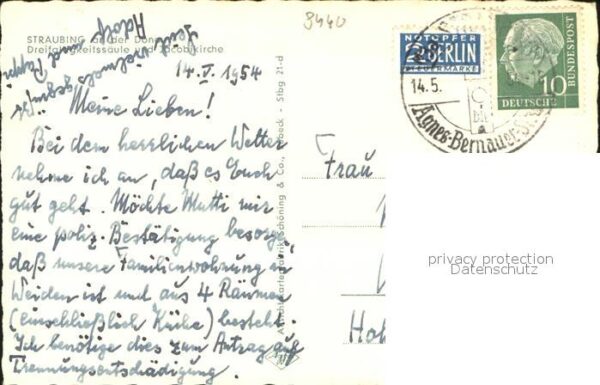 3440
STRAUBING an der Donau
Dreifaltigkeitssäule und Jacobikirche
14.V. 1954
Meine Lieben!
Bei dem herrlichen Wetter
nehme ich an, daß es Euch
gut geht. Möchte Mutti mir
eine poliz. Bestätigung besorgen
daß unsere Familienwohnung in
Weiden ist und aus 4 Räumen
(einschließlich Küche) besteht.
Ich benötige dies zum Antrag auf
Trennungsentschädigung.
Seid vielmals gegrüßt
und
Adolf
Schöning & Co., Lübeck - Stbg 21-d
Frau
NOTOPFER
2 BERLIN
STEUERMARKE
14.5.
Agnes-Bernauer
10
DEUTSCHE
BUNDESPOST
privacy protection
Datenschutz